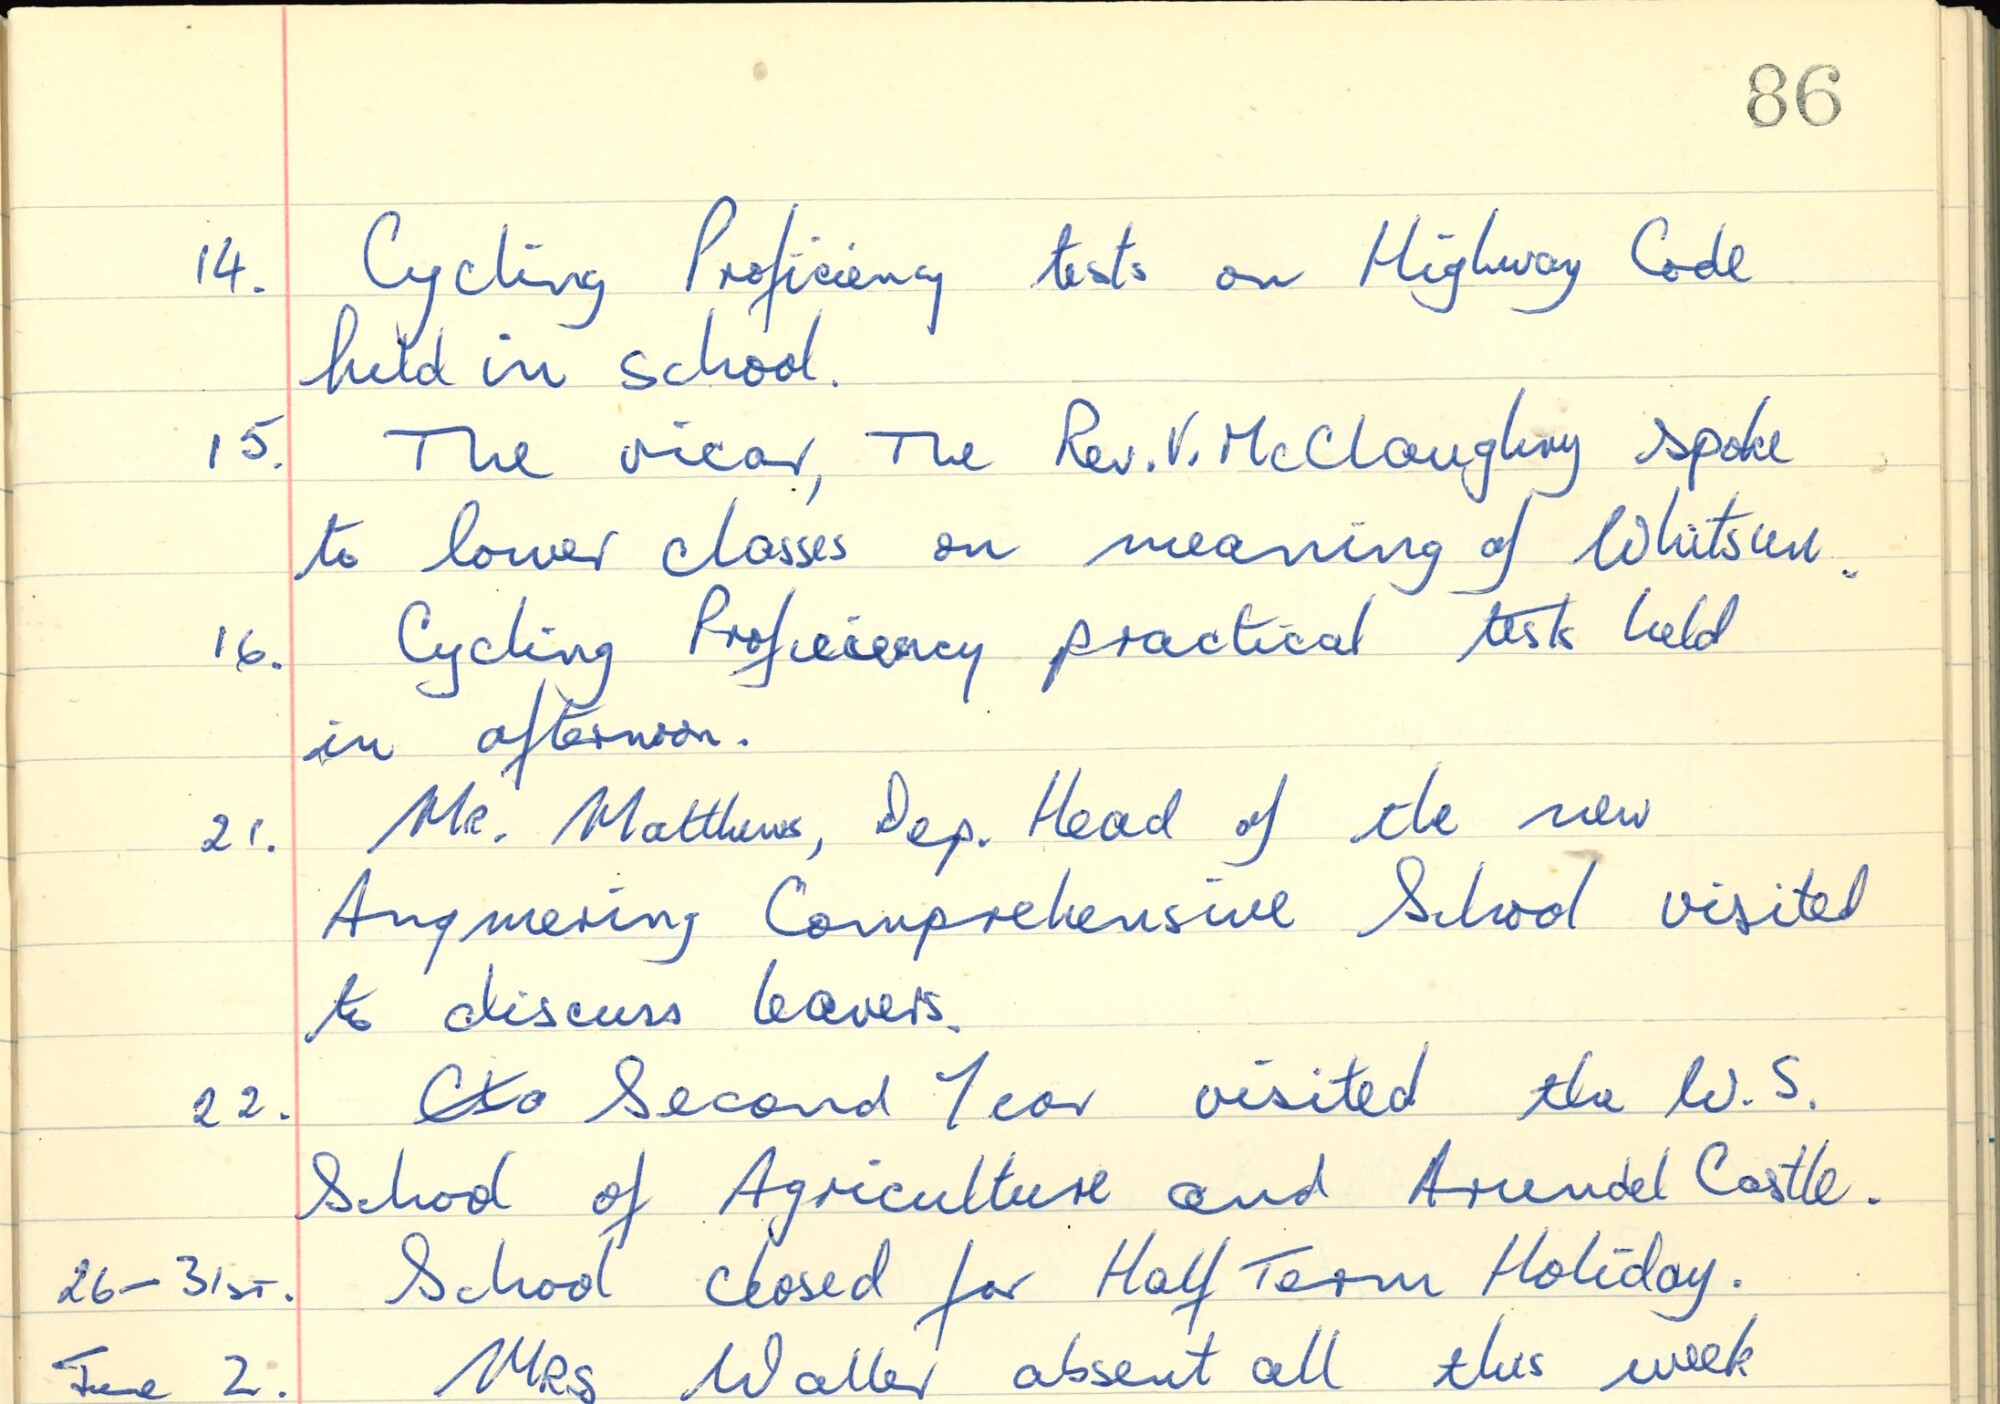 86
14. Cycling Proficiency tests on Highway Code
held in school.
15. The vicar, The Rev. V. McClaughry spoke
to lower classes on meaning of Whitsun.
16. Cycling Proficiency practical tests held
in afternoon.
21. Mr. Matthews, Dep. Head of the new
Angmering Comprehensive School visited
to discuss leavers.
22. Second Year visited the W.S.
School of Agriculture and Arundel Castle.
26-31st. School closed for Half Term Holiday.
June 2. Mrs Waller absent all this week